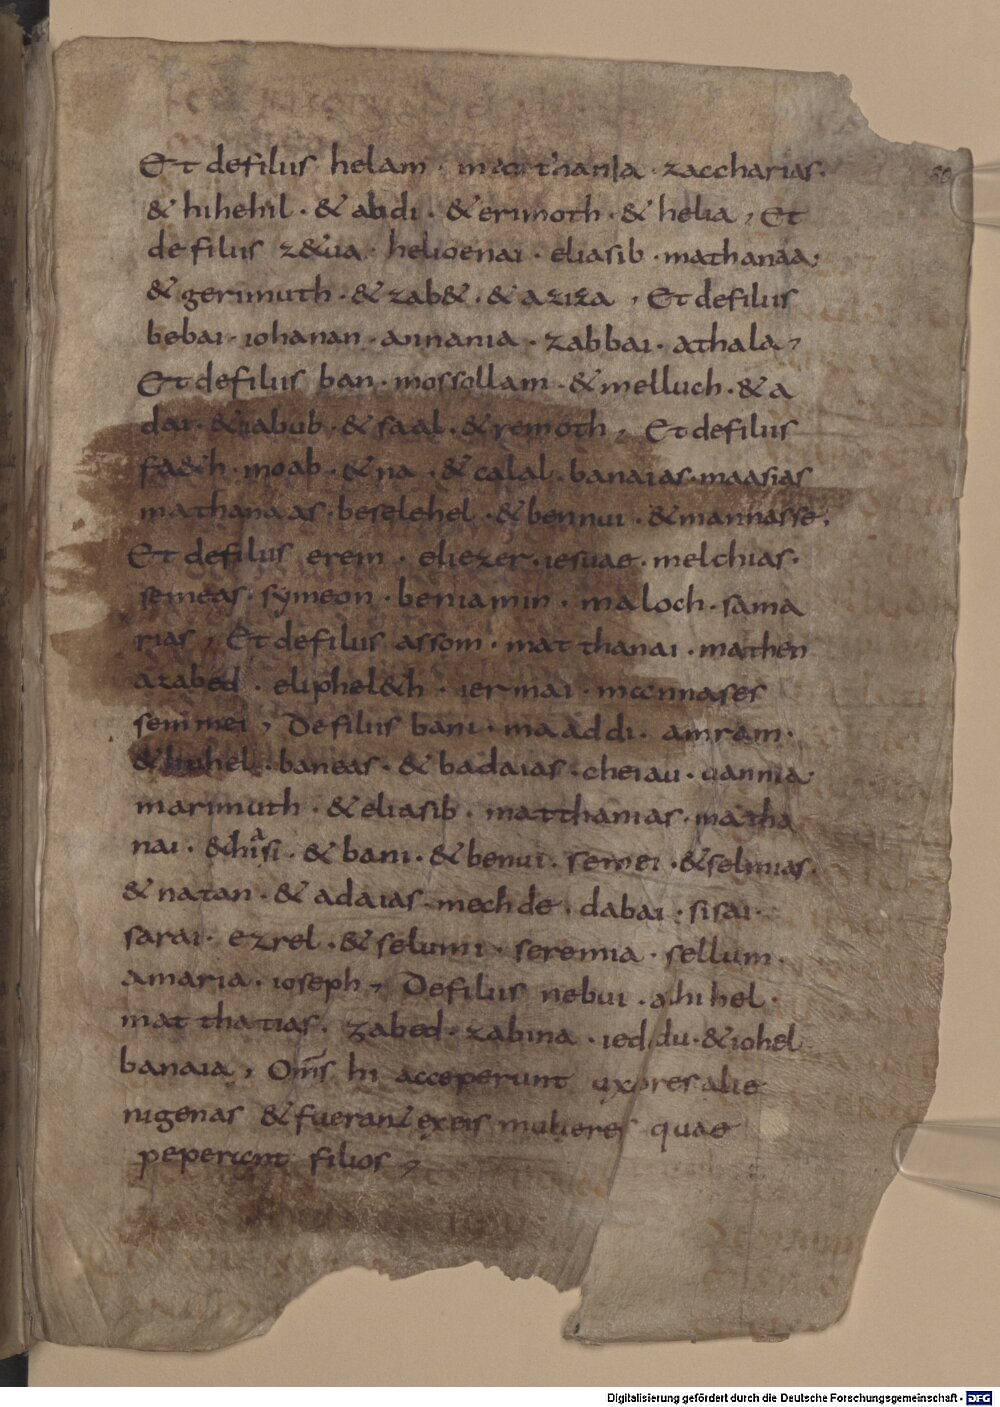 Et defilus helam · matthania · zaccharias ·
& hihehil · & abdi · & erimoth · & helia , Et
de filus z&ua · helioenai · eliasib · mathanaa ·
& gerimuth · & zab& · & aziza , Et defilus
bebai · iohanan · annania · zabbai · athala ,
Et defilus ban · mossollam · & melluch · & a
dai · & iabub · & saal · & remoth , Et defilus
fa&h · moab · & na · & calal · banaias · maasias
mathanaas · beselehel · & bennui · & mannasse ·
Et defilus erem · eliezer · iesuae · melchias ·
semeas · symeon · beniamin · maloch · sama
rias , Et defilus assom · matthanai · mathen
azabed · eliphel&h · iermai · mannases
semmei , Defilus bani · maaddi · amram ·
& huhel · baneas · & badaias · cheiau · uannia ·
marimuth · & eliasib · matthanias · matha
nai · & hiasi · & bani · & benui · semei · & selmias ·
& natan · & adaias · mechde · dabai · sisai ·
sarai · ezrel · & selumi · seremia · sellum ·
amaria · ioseph , Defilus nebui · ahihel ·
matthatias · zabed · zabina · ieddu · & iohel
banaia , Om̄s hi acceperunt uxores alie
nigenas & fuerant exeis mulieres quae
pepererunt filios ,
80
Digitalisierung gefördert durch die Deutsche Forschungsgemeinschaft · DFG